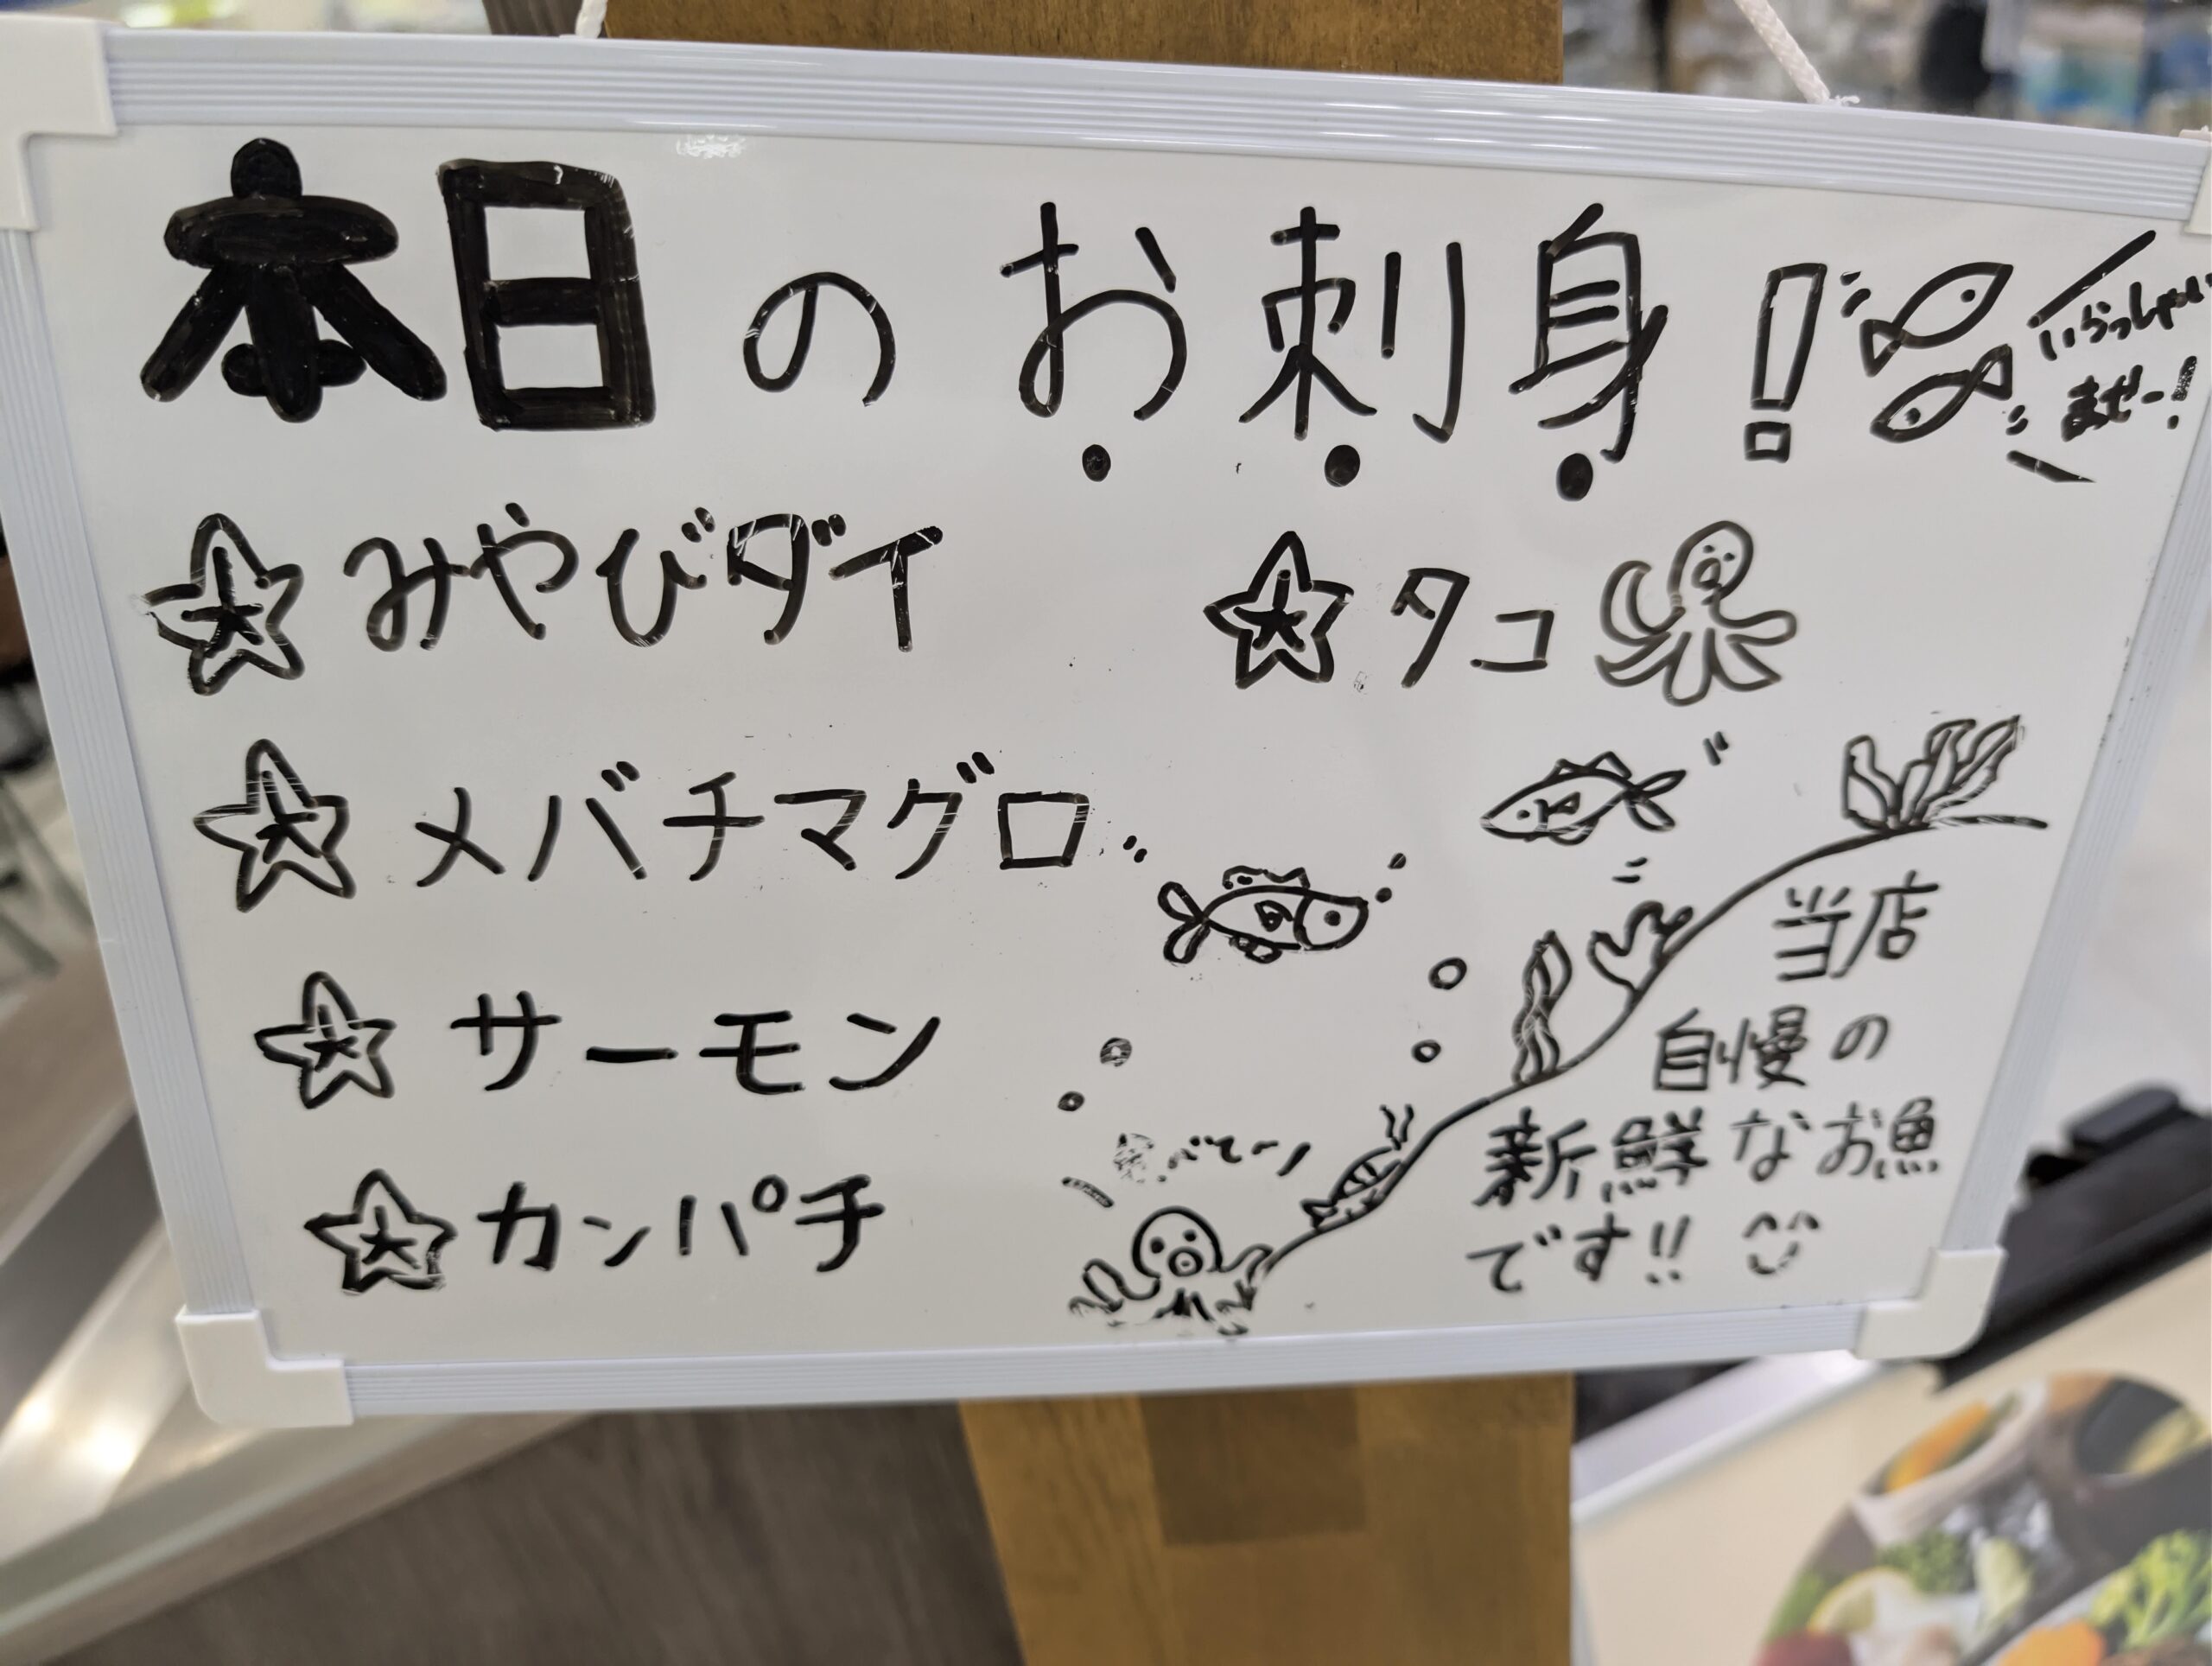 本日のお刺身!
いらっしゃい
ませー!
みやびダイ
タコ
メバチマグロ
サーモン
カンパチ
べて〜
当店
自慢の
新鮮なお魚
です!!